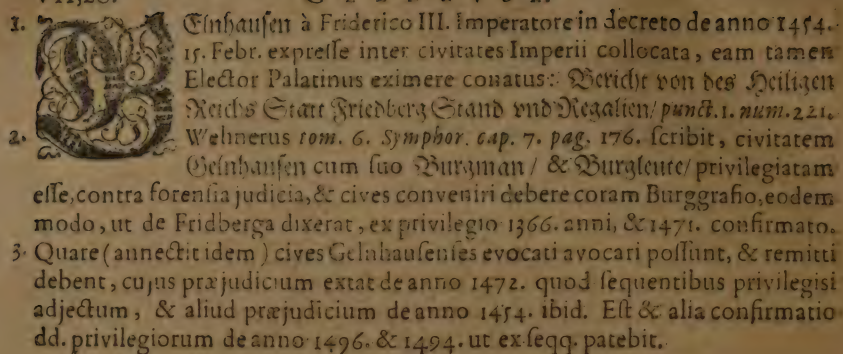 1. GElnhausen à Friderico III. Imperatore in decreto de anno 1454.
15. Febr. expresse inter civitates Imperii collocata, eam tamen
Elector Palatinus eximere conatus: Bericht von des Heiligen
Reichs Statt Friedberg Stand vnd Regalien/ punct. 1. num. 221.
2. Wehnerus tom. 6. Symphor. cap. 7. pag. 176. scribit, civitatem
Gelnhausen cum suo Burgman / & Burgleute/ privilegiatam
esse, contra forensia judicia, & cives conveniri debere coram Burggrafio, eodem
modo, ut de Fridberga dixerat, ex privilegio 1366. anni, & 1471. confirmato.
3. Quare (annectit idem) cives Gelnhausenses evocati avocari possunt, & remitti
debent, cujus præjudicium extat de anno 1472. quod sequentibus privilegisi
adjectum, & aliud præjudicium de anno 1454. ibid. Est & alia confirmatio
dd. privilegiorum de anno 1496. & 1494. ut ex seqq. patebit.